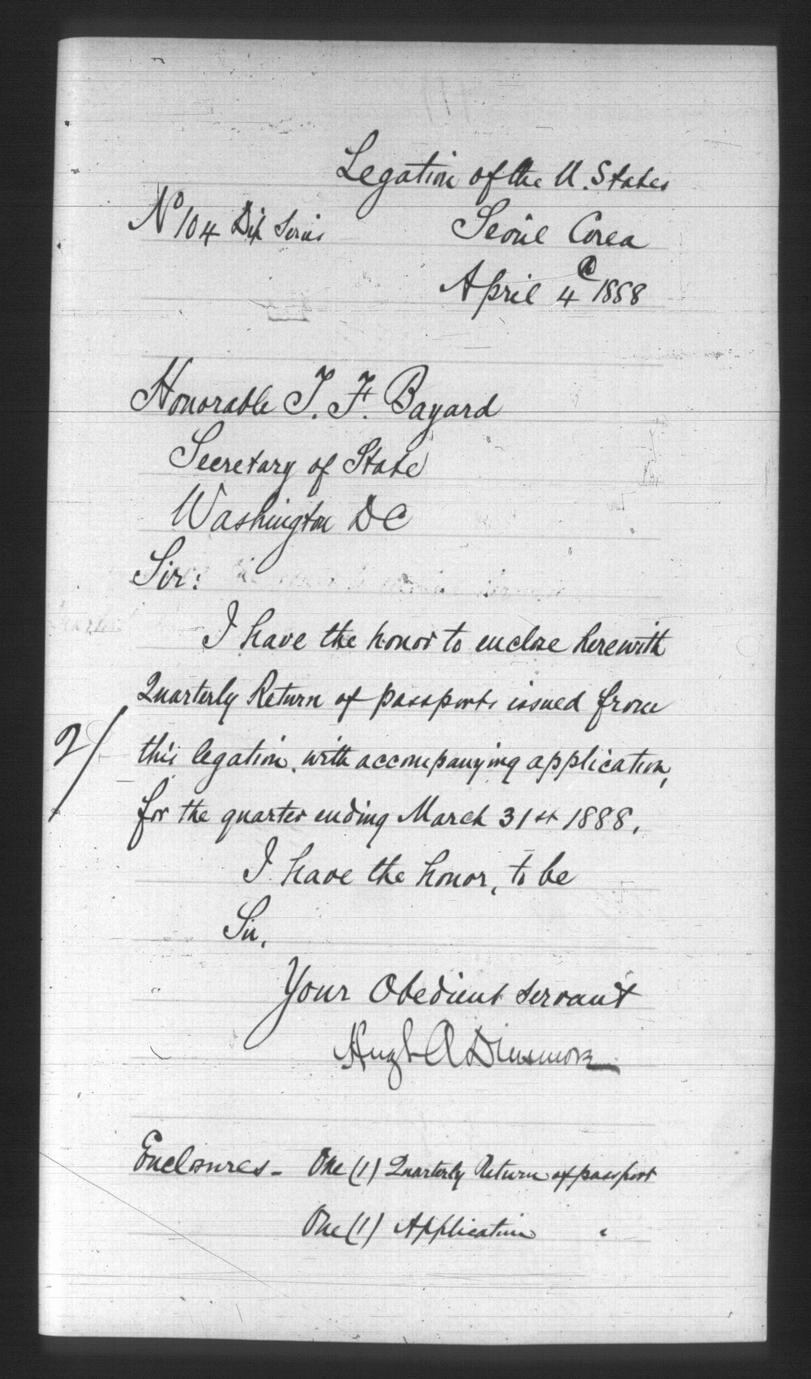 Legation of the U. States
No 104 Dip Series
Seoul Corea
April 4 1888
Honorable T. F. Bayard
Secretary of State
Washington DC
Sir:
I have the honor to enclose herewith
Quarterly Return of passports issued from
2/
this legation, with accompanying application,
for the quarter ending March 31st 1888.
I have the honor, to be
Sir,
Your Obedient servant
Hugh A Dinsmore
Enclosures - One (1) Quarterly Return of passport
One (1) Application "